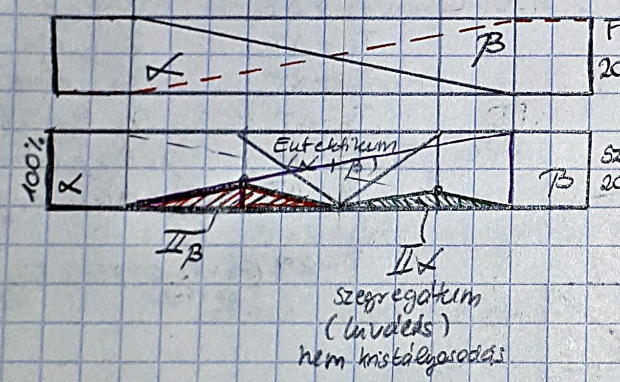 F
α
β
20
100%
Eutektikum
(α + β)
Sz
α
β
20
IIβ
IIα
szegregátum
(kiválás)
nem kristályosodás